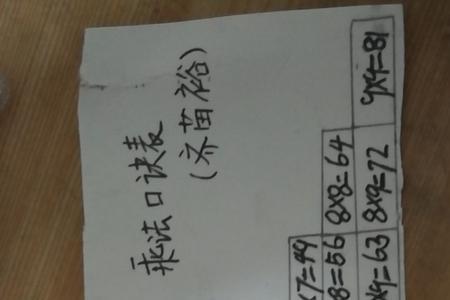 乘法口诀表
(齐苗裕)
×7=49
8=56 8×8=64
×9=63 8×9=72 9×9=81